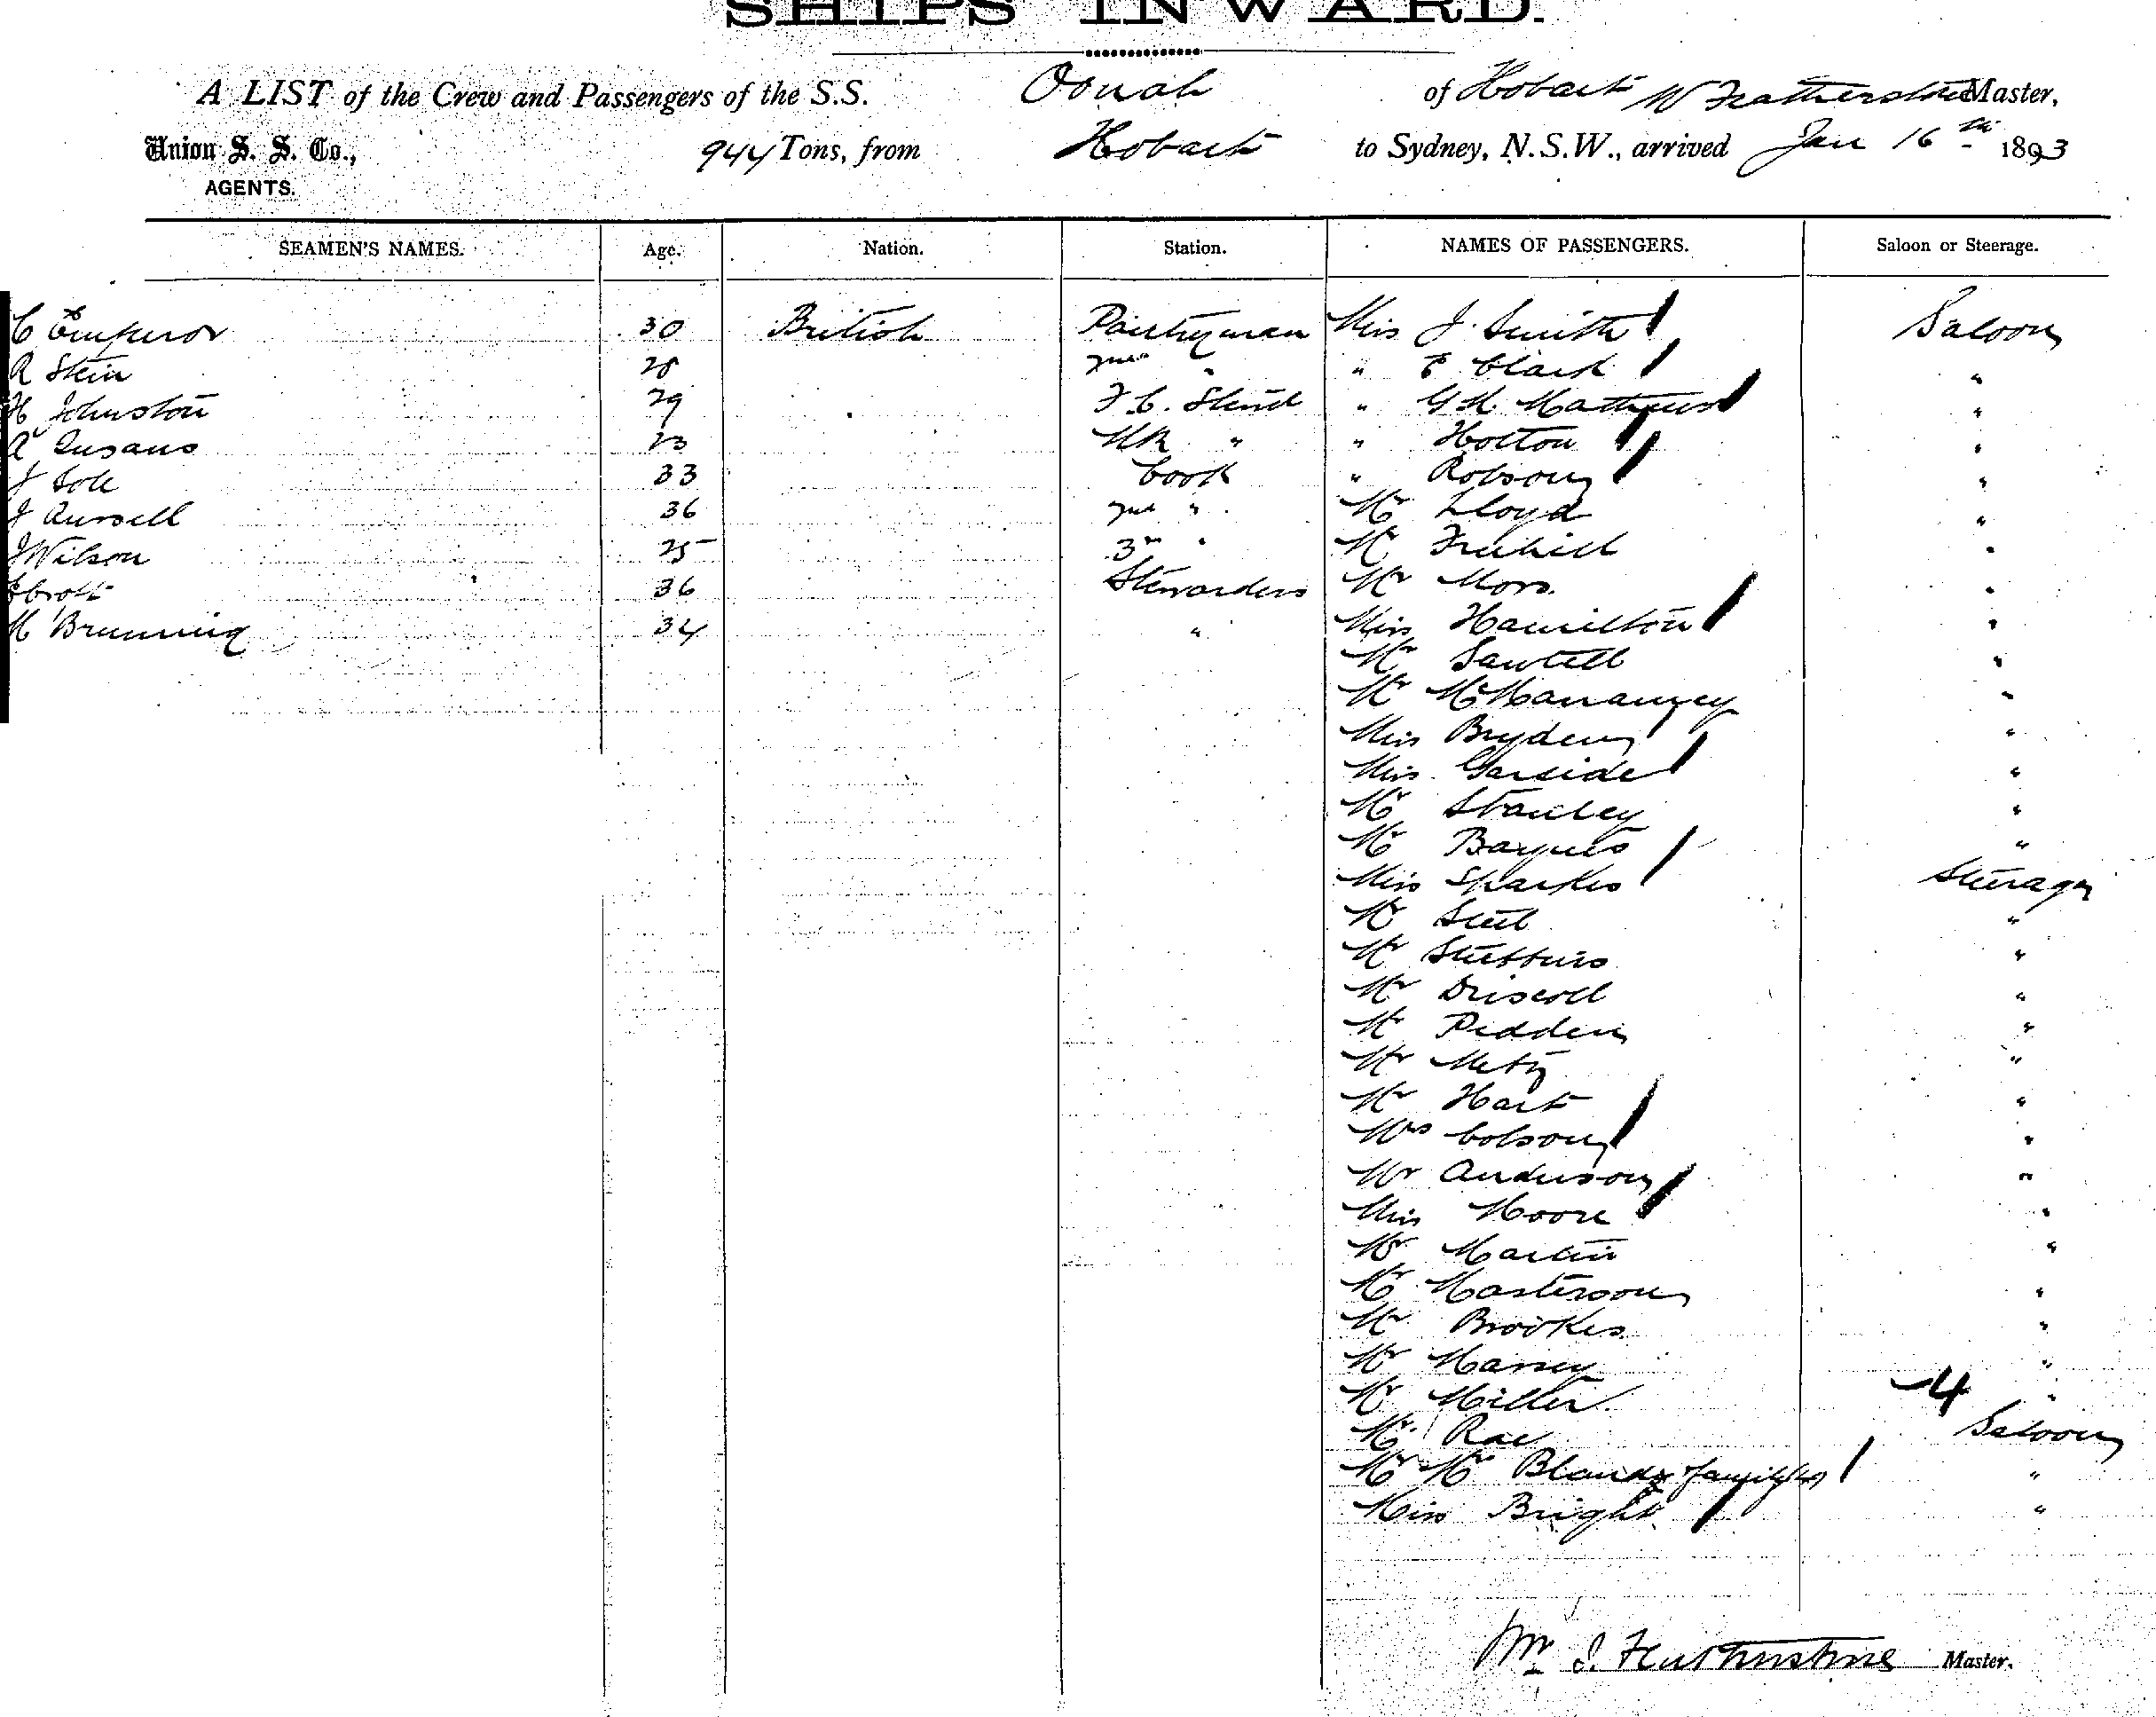 SHIPS INWARD.
A LIST of the Crew and Passengers of the S.S. Oonah of Hobart W Featherstone Master,
Union S. S. Co., 944 Tons, from Hobart to Sydney, N.S.W., arrived Jan 16th 1893
AGENTS.
SEAMEN'S NAMES. Age. Nation. Station. NAMES OF PASSENGERS. Saloon or Steerage.
C Emperor 30 British Pantryman Miss J. Smith Saloon
R Stein 28 2nd " " E Clark "
H Johnston 29 F.C. Stewd " G M Mathews "
A 23 " " Holton "
J Sole 33 Cook " Robson "
J Russell 36 2nd " Mr Lloyd "
J Wilson 25 3rd " Mr Freehill "
36 Stewardess Mr Moro. "
M Brunning 34 " Miss Hamilton "
Mr Sawtell "
Mr "
Miss Bryden "
Miss Garside "
Mr Stanley "
Mr Baynes "
Miss Sparkes Steerage
Mr Steel "
Mr Stebbins "
Mr Driscoll "
Mr Pedden "
Mr Metz "
Mr Hart "
Mrs Colson "
Mr Anderson "
Miss Moore "
Mr Martin "
Mr Masterson "
Mr Brookes "
Mr "
Mr Miller. 4 "
Mr Rae Saloon
Mr Mrs Bland & family (4) "
Miss Bright "
Wm J. Featherstone Master.